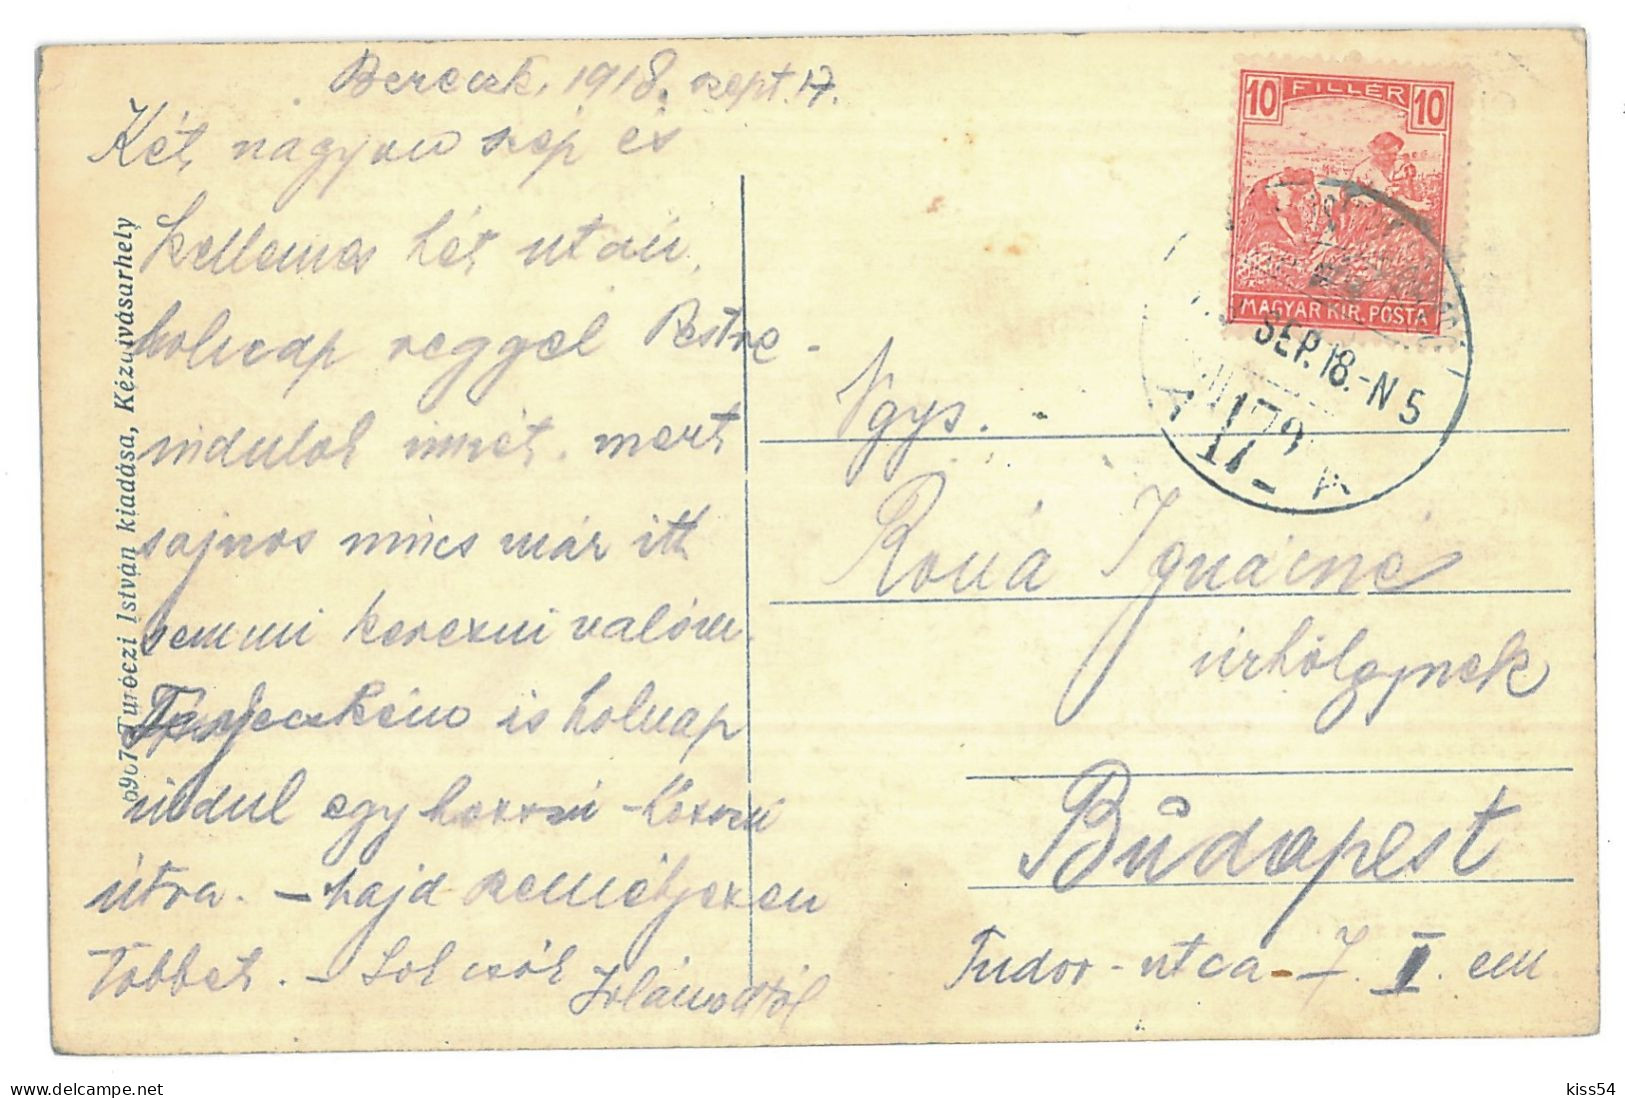 Bereczk, 1918. szept. 17.
Két nagyon szép és
kellemes hét után,
holnap reggel Pestre
indulok ismét. mert
sajnos nincs már itt
semmi keresni valóm.
is holnap
indul egy hosszú-hosszú
útra. – Majd személyesen
többet. – Sok csók
Jolánodtól
6907 Turóczi István kiadása, Kézdivásárhely
10 FILLÉR 10
MAGYAR KIR. POSTA
SEP. 18.-N 5
Ngys.
Róná Ignácné
úrhölgynek
Budapest
Tudor-utca-7. I. em.
delcampe.net
kiss54